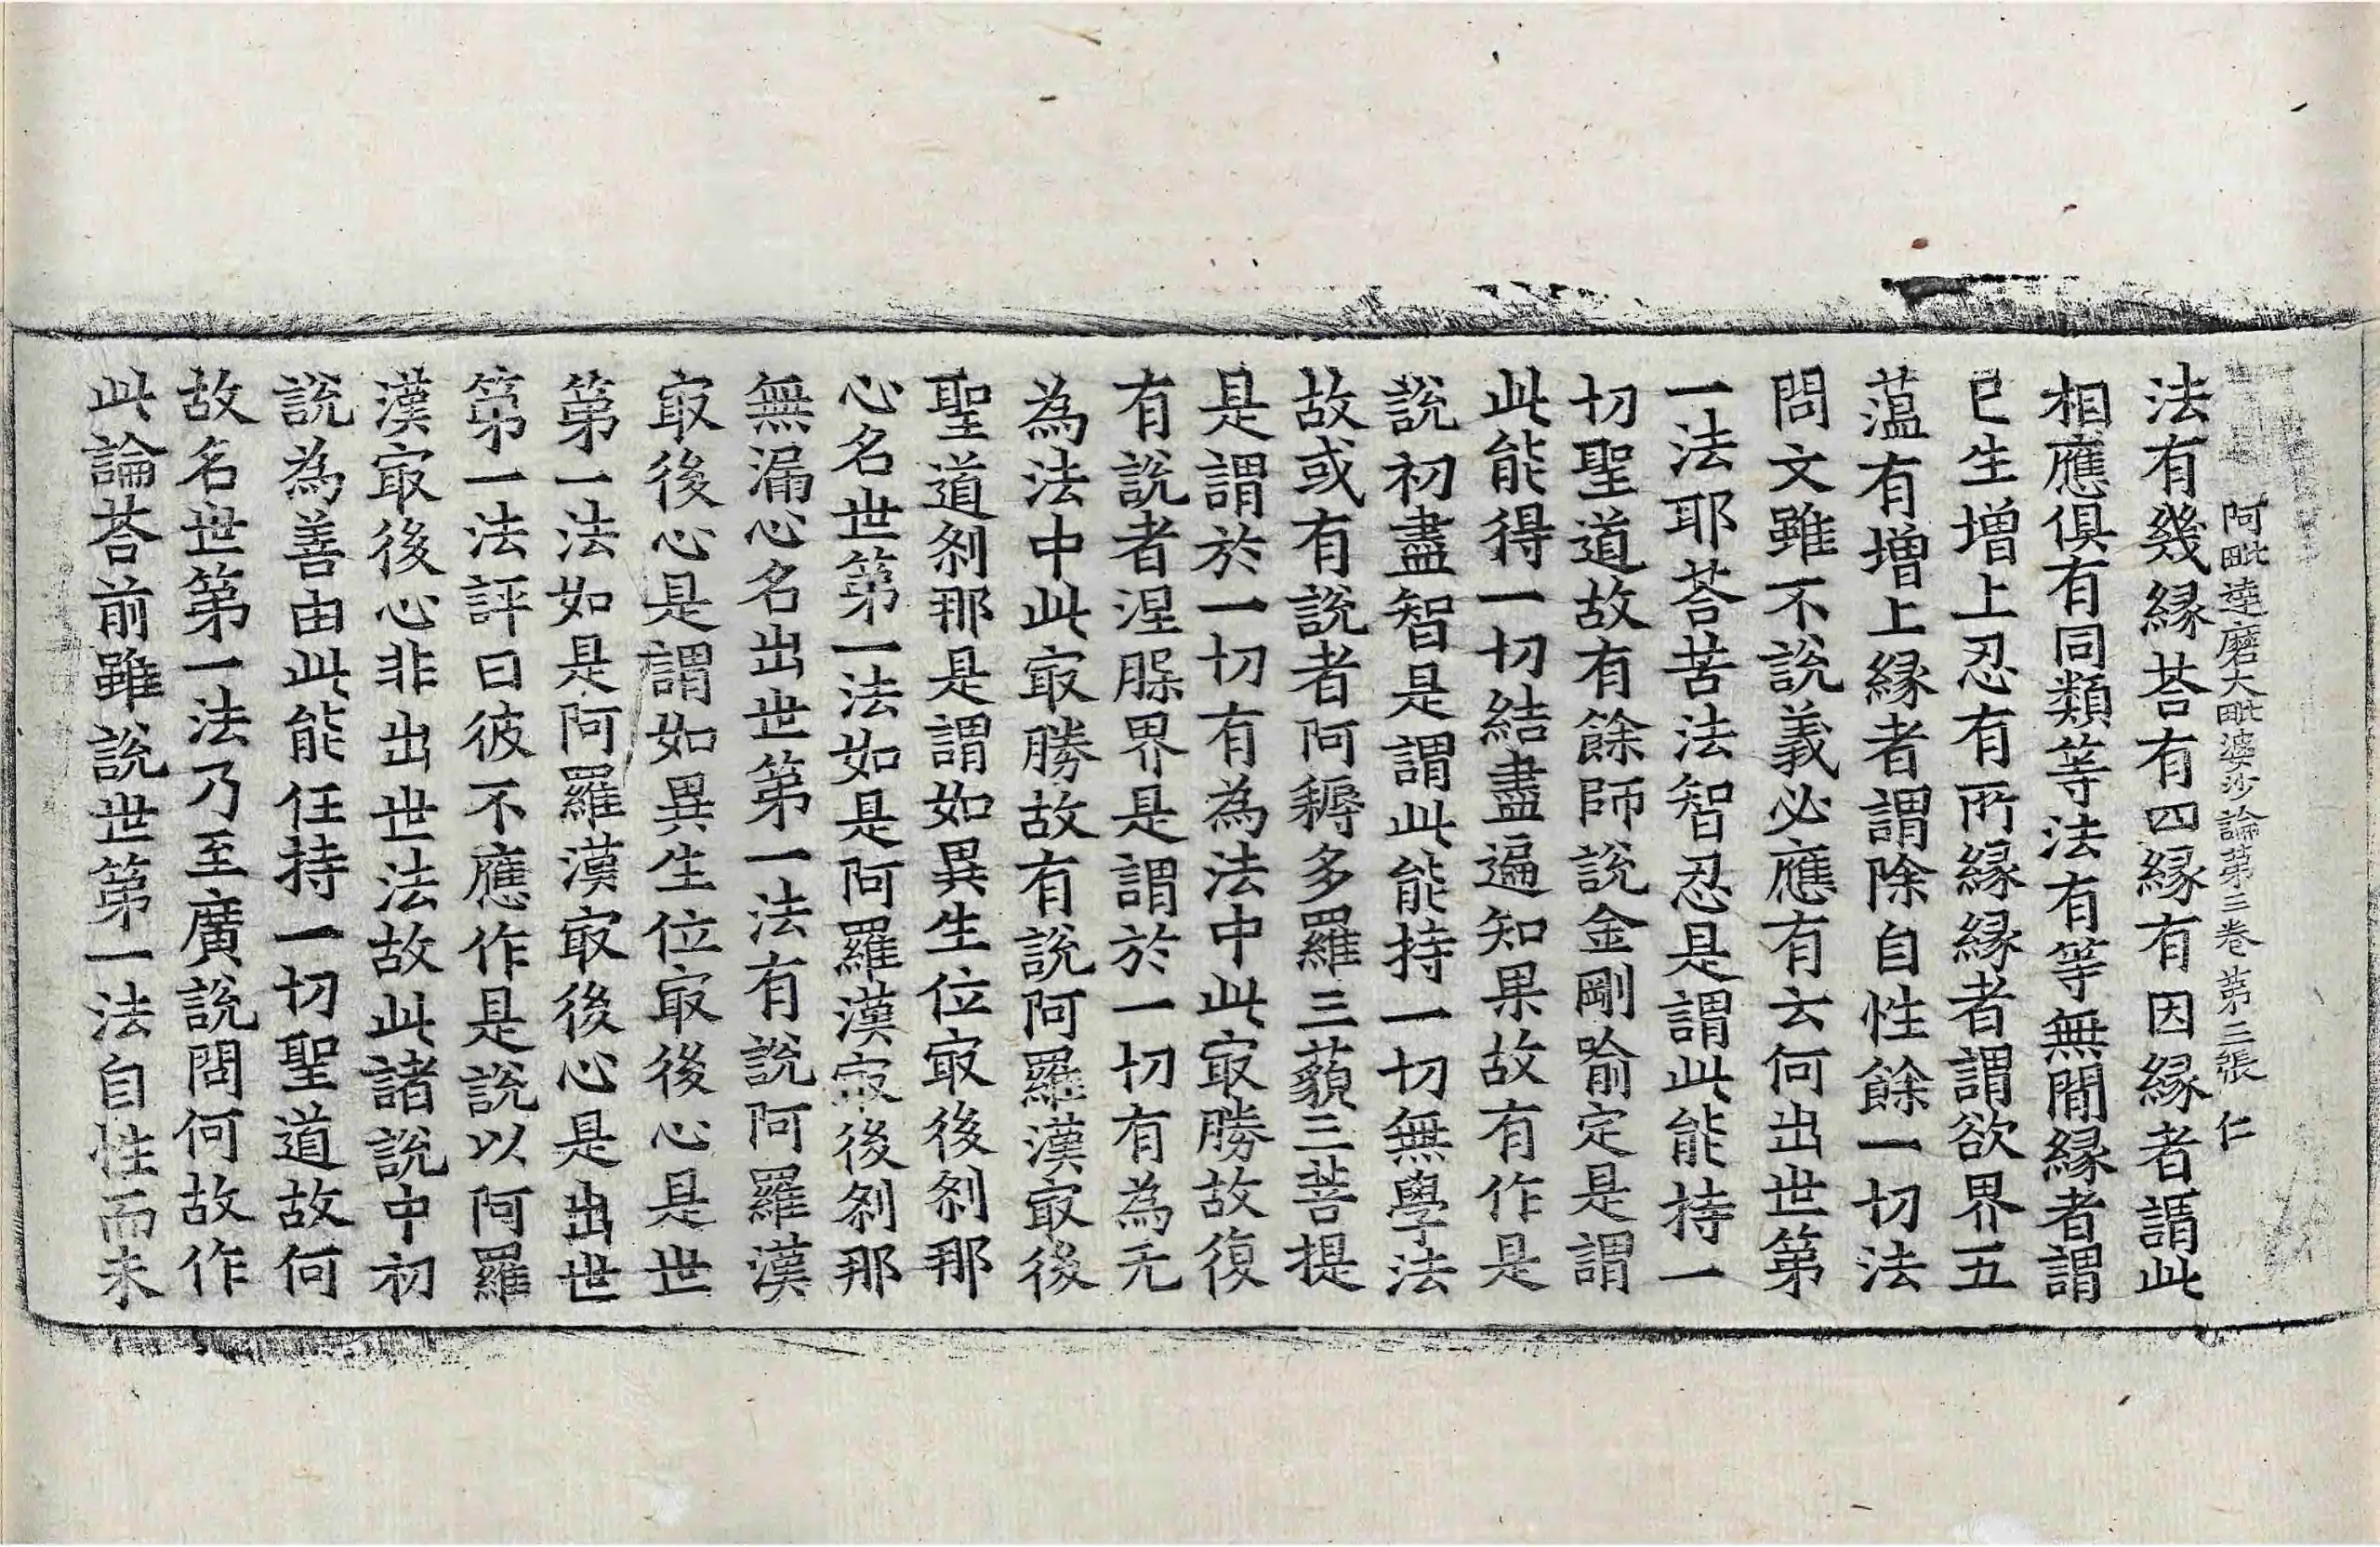 阿毗達磨大毗婆沙論第三卷 第三張 仁
法有幾緣荅有四緣有因緣者謂此
相應俱有同類等法有等無間緣者謂
巳生增上忍有所緣緣者謂欲界五
薀有增上緣者謂除自性餘一切法
問文雖不說義必應有云何出世第
一法耶荅苦法智忍是謂此能持一
切聖道故有餘師說金剛喻定是謂
此能得一切結盡遍知果故有作是
說初盡智是謂此能持一切無學法
故或有說者阿耨多羅三藐三菩提
是謂於一切有為法中此㝡勝故復
有說者涅槃界是謂於一切有為无
為法中此㝡勝故有說阿羅漢㝡後
聖道剎那是謂如異生位㝡後剎那
心名世第一法如是阿羅漢㝡後剎那
無漏心名出世第一法有說阿羅漢
㝡後心是謂如異生位㝡後心是世
第一法如是阿羅漢㝡後心是出世
第一法評曰彼不應作是說以阿羅
漢㝡後心非出世法故此諸說中初
說為善由此能任持一切聖道故何
故名世第一法乃至廣說問何故作
此論荅前雖說世第一法自性而未